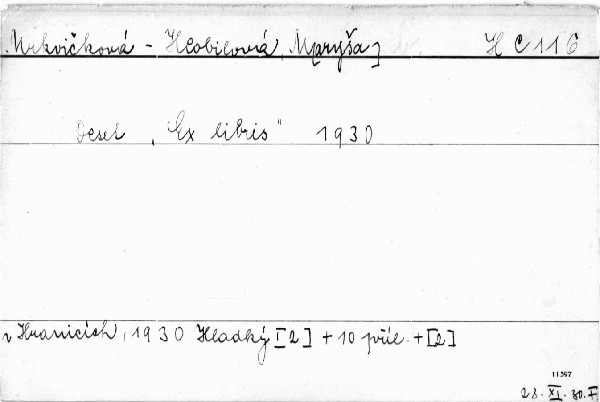 Mrkvičková - Hlobilová, Maryša] H C 116
Deset „Ex libris" 1930
v Hranicích, 1930 Hladký [2] + 10 příl. + [2]
11597
28. XI. 80. F